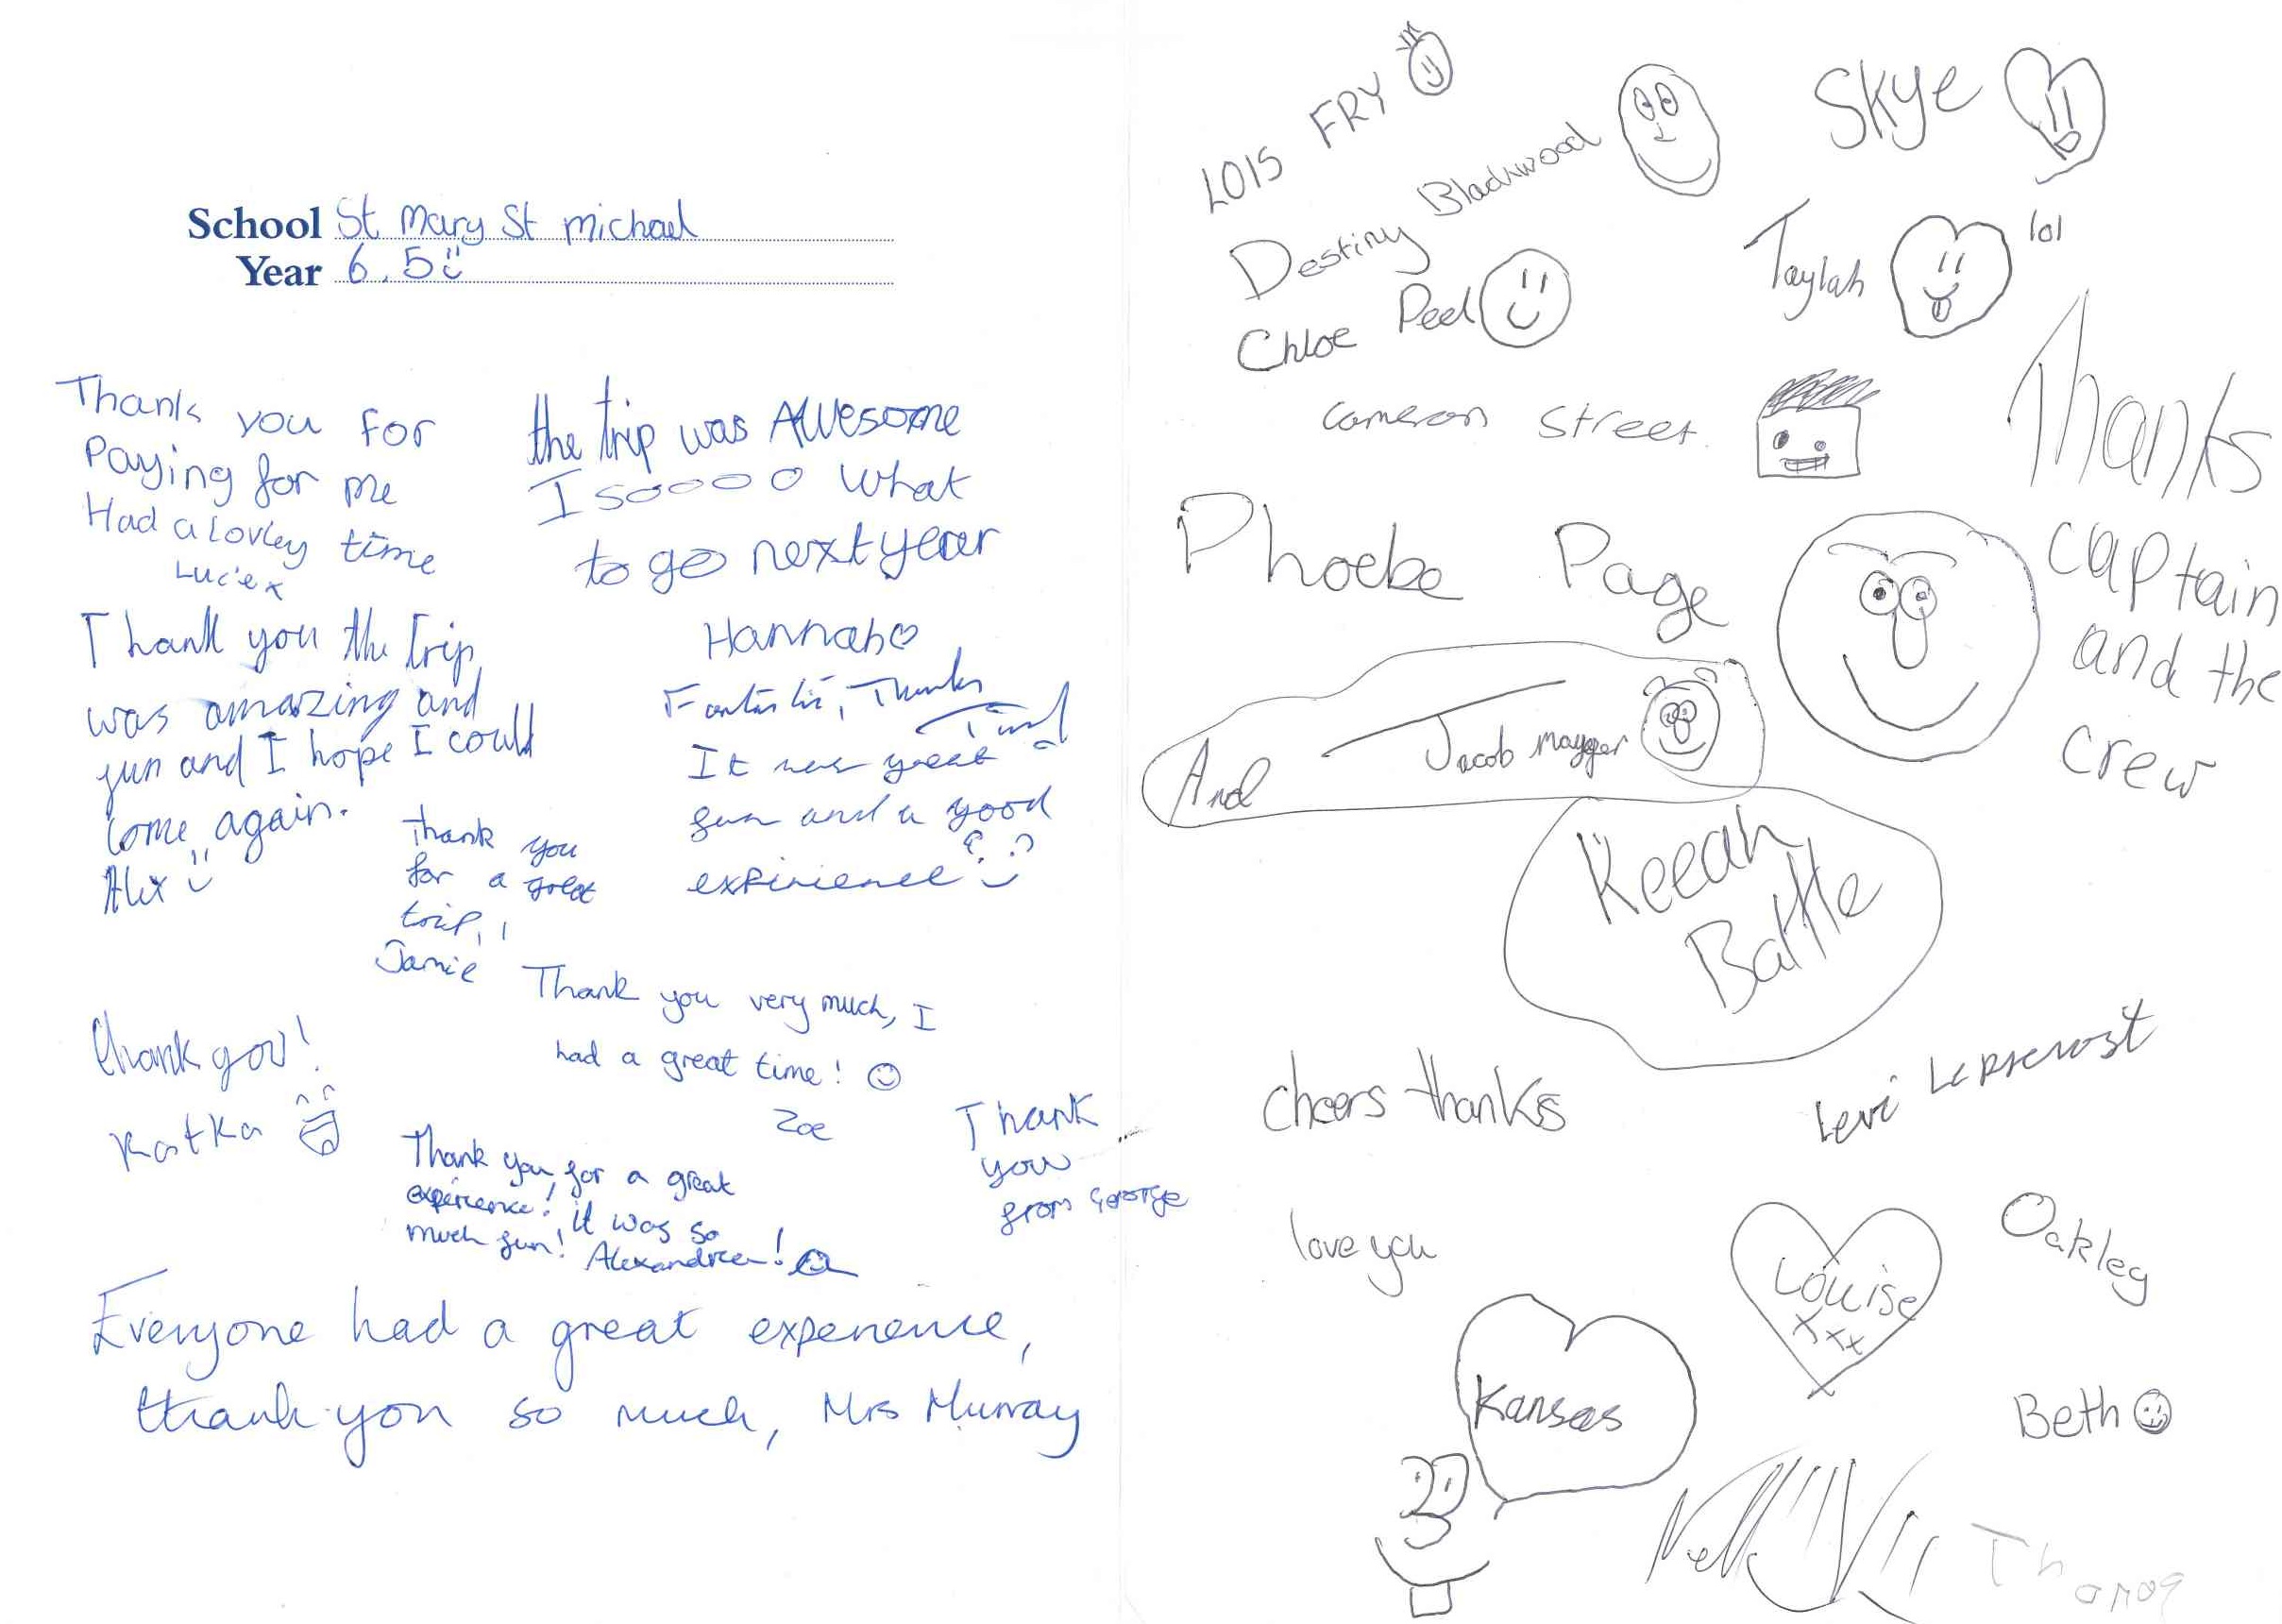 School St Mary St michael
Year 6.5
Thank you for
Paying for me
Had a lovley time
Lucie x
the trip was AWesome
I soooo what
to go next year
Hannah
Thank you the trip
was amazing and
fun and I hope I could
come again.
Alex
Fantastic, Thanks
It was great
fun and a good
expirience
Thank you
for a great
trip,
Jamie
Thank you very much, I
had a great time!
Zoe
thank you!
Katka
Thank you for a great
experience! it was so
much fun! Alexandra!
Thank
you
from George
Everyone had a great experience,
thank you so much, Mrs Murray
LOIS FRY
Destiny Blackwood
Chloe Peel
Skye
Taylah
lol
cameron street.
Thanks
captain
and the
crew
Phoebe Page
And Jacob
Keeah
Battle
cheers thanks
Levi
love you
Louise
xxx
Oakley
Kansas
Beth
Thomas